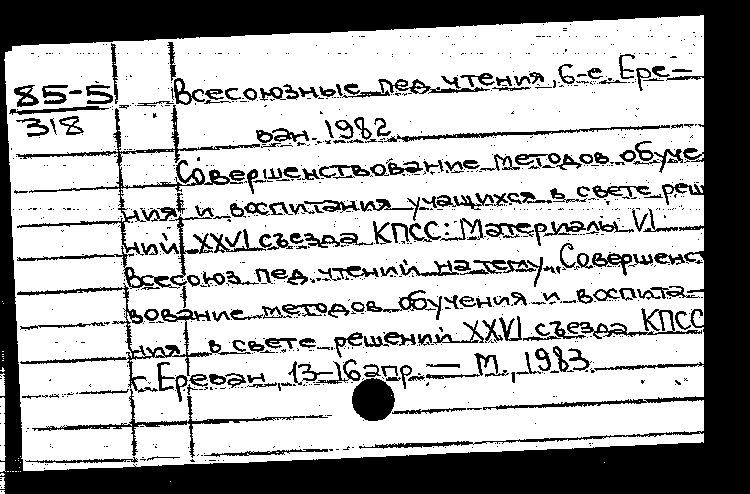 85-5
318
Всесоюзные пед. чтения, 6-е. Ере-
ван. 1982.
Совершенствование методов обуче
ния и воспитания учащихся в свете реш
ний XXVI съезда КПСС: Материалы VI
Всесоюз. пед. чтений на тему „Совершенст
вование методов обучения и воспита-
ния в свете решений XXVI съезда КПСС
г. Ереван, 13-16 апр. — М., 1983.